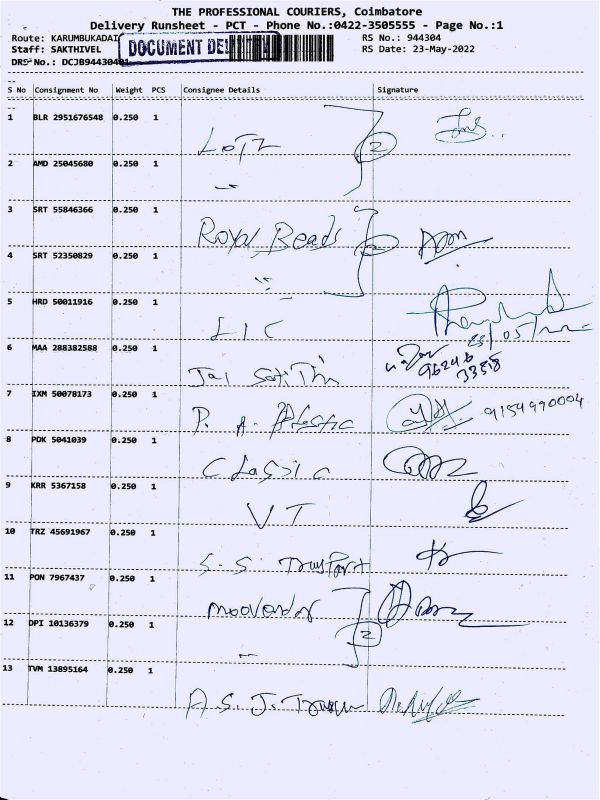 THE PROFESSIONAL COURIERS, Coimbatore
Delivery Runsheet - PCT - Phone No.:0422-3505555 - Page No.:1
Route: KARUMBUKADAI RS No.: 944304
Staff: SAKTHIVEL DOCUMENT RS Date: 23-May-2022
DRS No.: DCJB94430401
S No Consignment No Weight PCS Consignee Details Signature
1 BLR 2951676548 0.250 1
2
2 AMD 25045680 0.250 1
3 SRT 55846366 0.250 1 Royal Beads
2
4 SRT 52350829 0.250 1
5 HRD 50011916 0.250 1 LIC
23/05/
6 MAA 288382588 0.250 1 Jai 96246
3358
7 IXM 50078173 0.250 1 P. A. Plastic 9154990004
8 PDK 5041039 0.250 1 Classic
9 KRR 5367158 0.250 1 VT
10 TRZ 45691967 0.250 1 S. S.
11 PON 7967437 0.250 1
2
12 DPI 10136379 0.250 1
13 TVM 13895164 0.250 1 A. S. J.